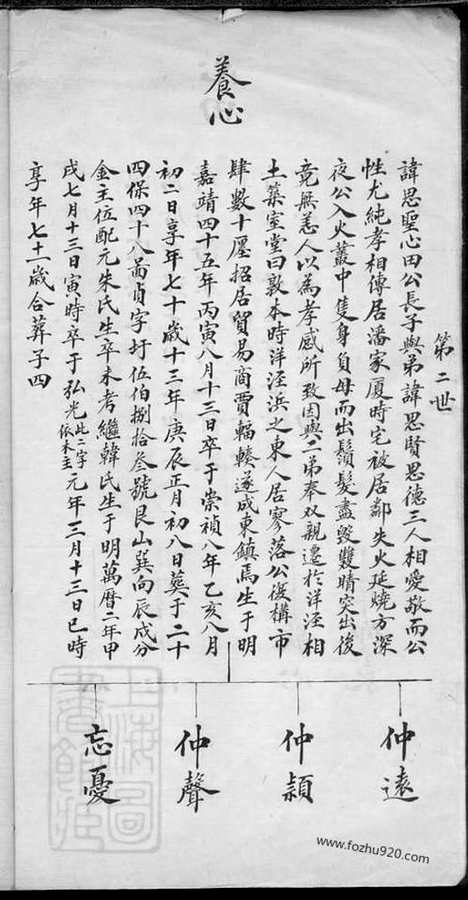 第二世
養心
諱思聖心田公長子與弟諱思賢思德三人相愛敬而公
性尤純孝相傳居潘家廈時宅被居鄰失火延燒方深
夜公入火叢中隻身負母而出鬚髮盡毀雙睛突出後
竟無恙人以為孝感所致因與二弟奉双親遷於洋涇相
土築室堂曰敦本時洋涇浜之東人居寥落公復構市
肆數十廛招居貿易商賈輻輳遂成東鎮焉生于明
嘉靖四十五年丙寅八月十三日卒于崇禎八年乙亥八月
初二日享年七十歲十三年庚辰正月初八日葬于二十
四保四十八啚貞字圩伍伯捌拾叁號艮山巽向辰戌分
金主位配元朱氏生卒未考繼韓氏生于明萬曆二年甲
戌七月十三日寅時卒于弘光此二字依木主元年三月十三日巳時
享年七十二歲合葬子四
仲遠
仲穎
仲聲
忘憂
上海圖書館藏
www.fozhu920.com